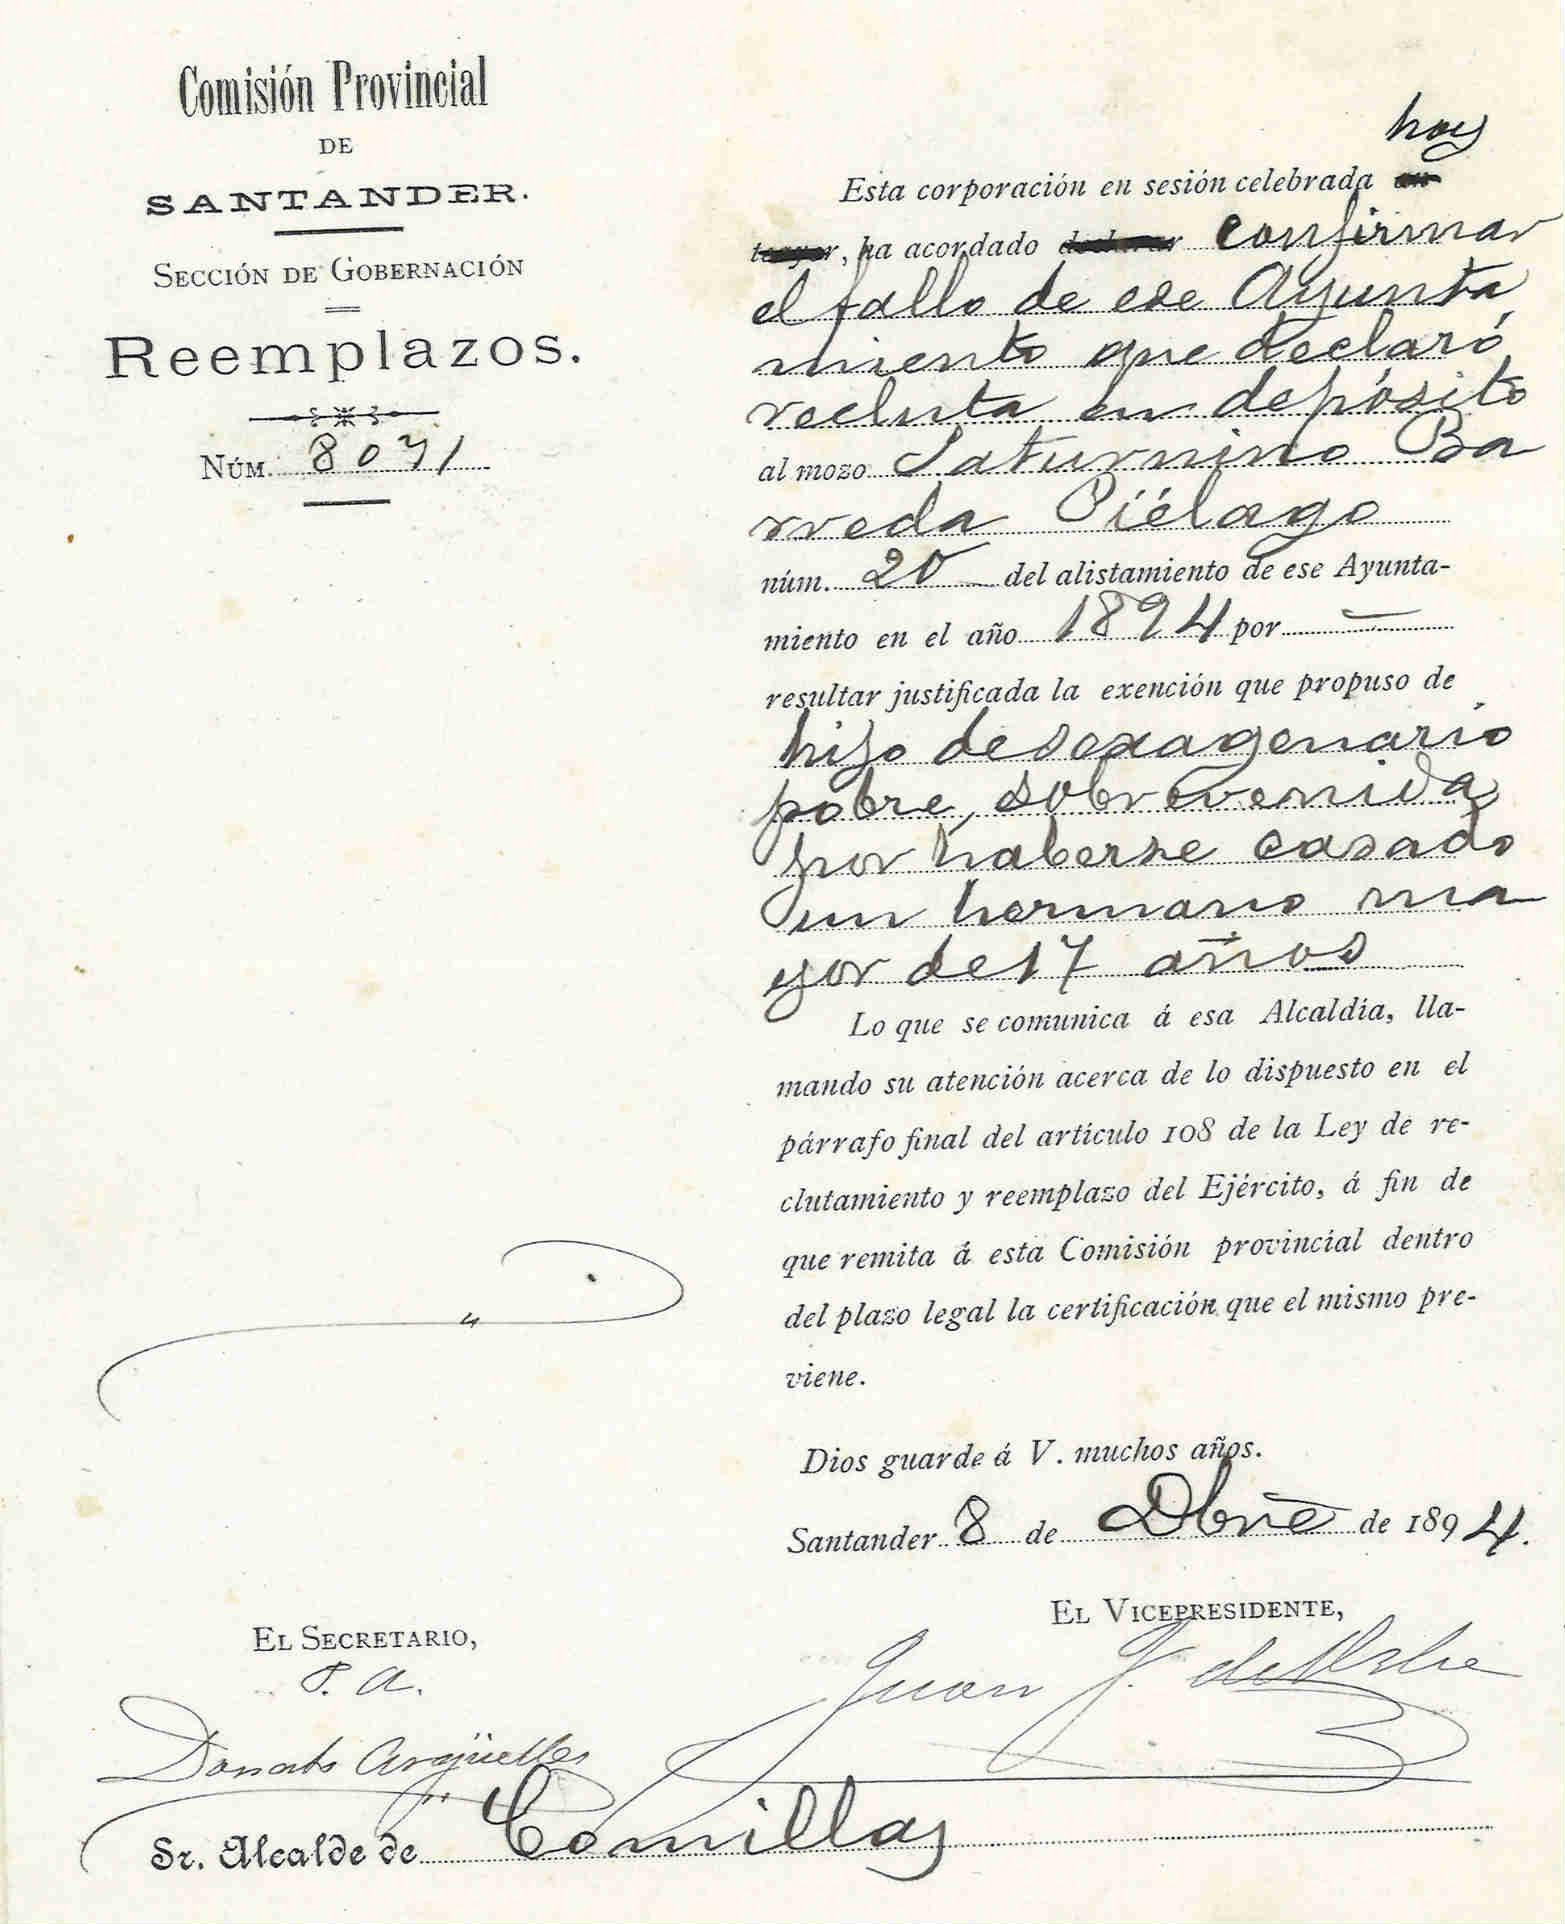 Comisión Provincial
DE
SANTANDER.
SECCIÓN DE GOBERNACIÓN
Reemplazos.
NÚM. 8071
hoy
Esta corporación en sesión celebrada
ha acordado confirmar
el fallo de ese Ayunta
miento que declaró
recluta en depósito
al mozo Saturnino Ba
rreda Piélago
núm. 20 del alistamiento de ese Ayunta-
miento en el año 1894 por —
resultar justificada la exención que propuso de
hijo de sexagenario
pobre, sobrevenida
por haberse casado
un hermano ma
yor de 17 años
Lo que se comunica á esa Alcaldía, lla-
mando su atención acerca de lo dispuesto en el
párrafo final del artículo 108 de la Ley de re-
clutamiento y reemplazo del Ejército, á fin de
que remita á esta Comisión provincial dentro
del plazo legal la certificación que el mismo pre-
viene.
Dios guarde á V. muchos años.
Santander 8 de Dbre de 1894.
EL VICEPRESIDENTE,
Juan J. de
EL SECRETARIO,
P. A.
Donato Argüelles
Sr. Alcalde de Comillas